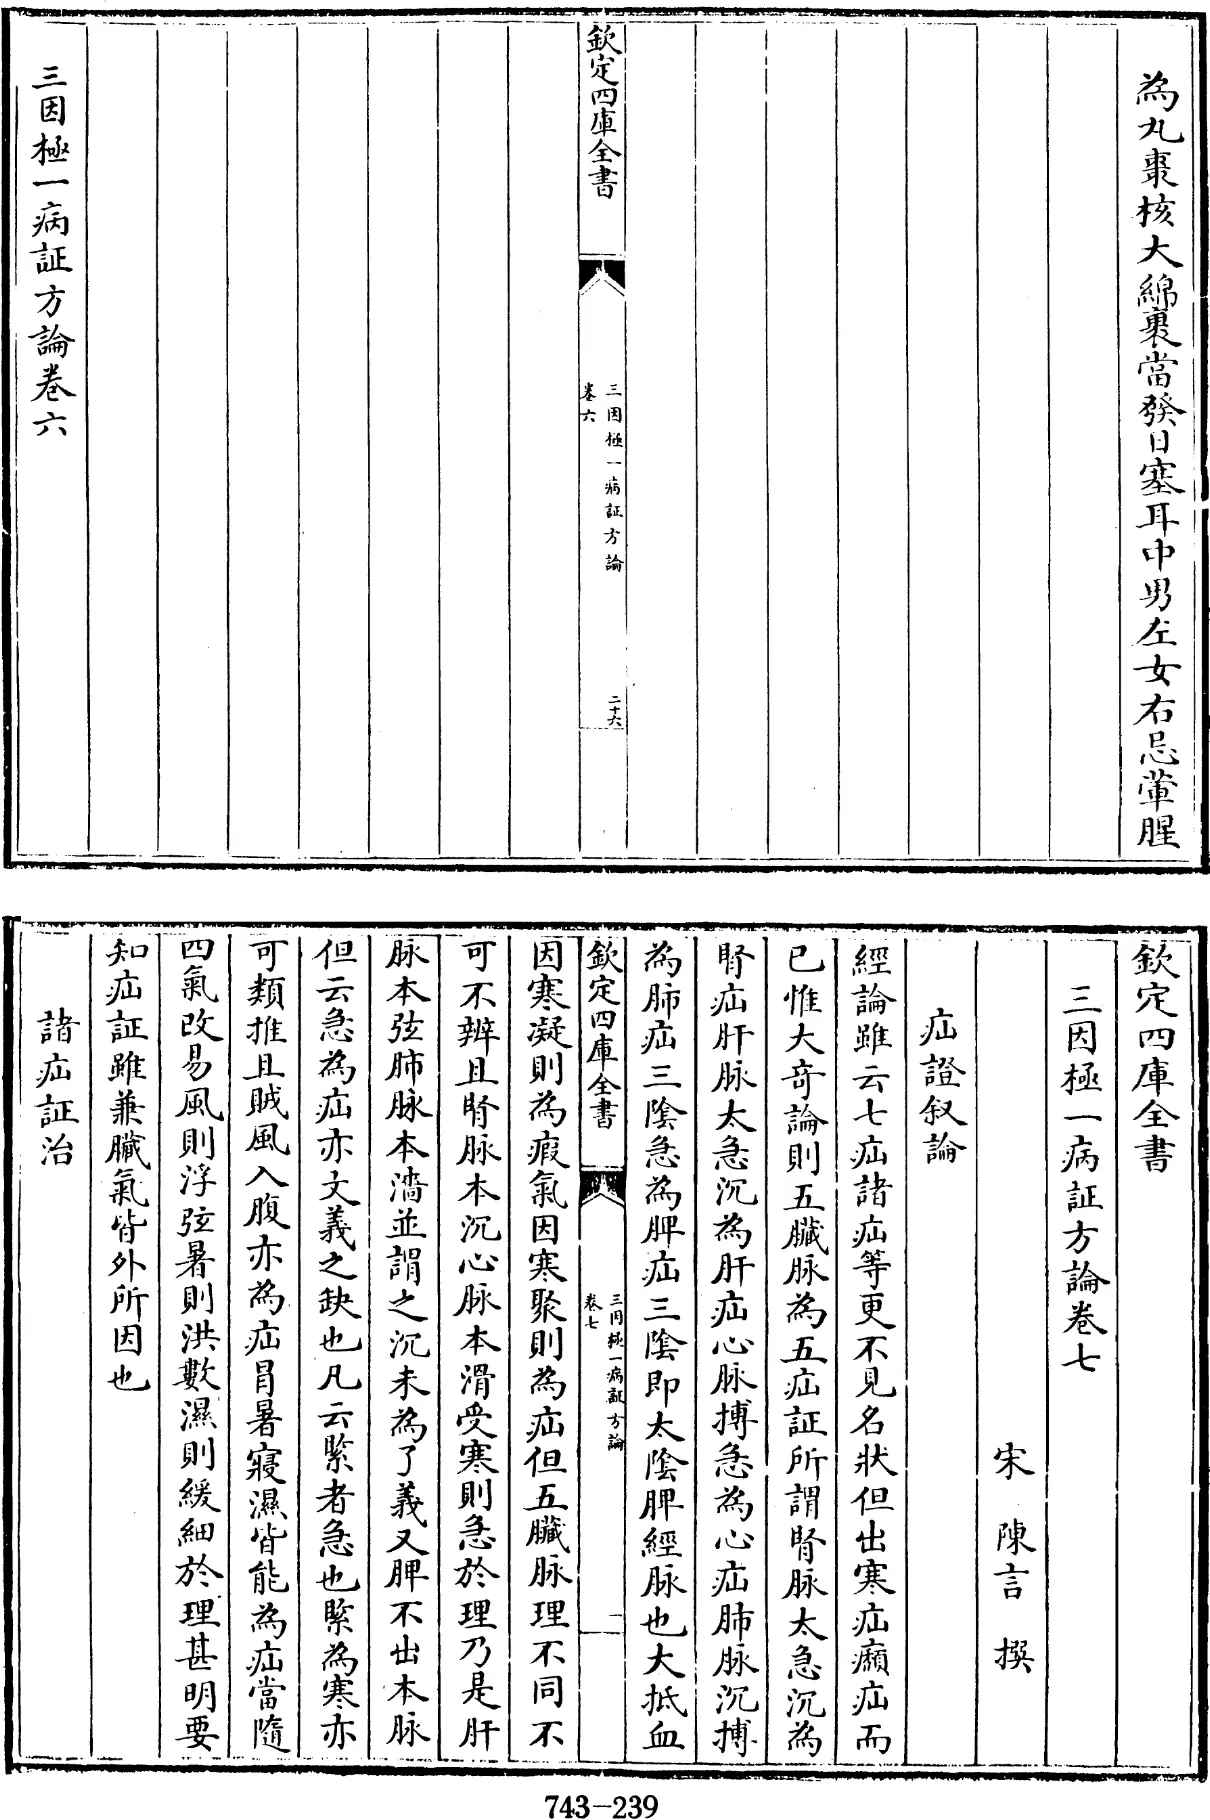 為丸棗核大綿裹當發日塞耳中男左女右忌葷腥
欽定四庫全書
三因極一病証方論
卷六
二十六
三因極一病証方論卷六
欽定四庫全書
三因極一病証方論卷七
宋 陳言 撰
疝證叙論
經論雖云七疝諸疝等更不見名狀但出寒疝癩疝而
已惟大奇論則五臟脉為五疝証所謂腎脉太急沉為
腎疝肝脉太急沉為肝疝心脉搏急為心疝肺脉沉搏
為肺疝三陰急為脾疝三陰即太陰脾經脉也大抵血
欽定四庫全書
三因極一病証方論
卷七
一
因寒凝則為瘕氣因寒聚則為疝但五臟脉理不同不
可不辨且腎脉本沉心脉本滑受寒則急於理乃是肝
脉本弦肺脉本濇並謂之沉未為了義又脾不出本脉
但云急為疝亦文義之缺也凡云緊者急也緊為寒亦
可類推且賊風入腹亦為疝冐暑寢濕皆能為疝當隨
四氣改易風則浮弦暑則洪數濕則緩細於理甚明要
知疝証雖兼臟氣皆外所因也
諸疝証治
743-239